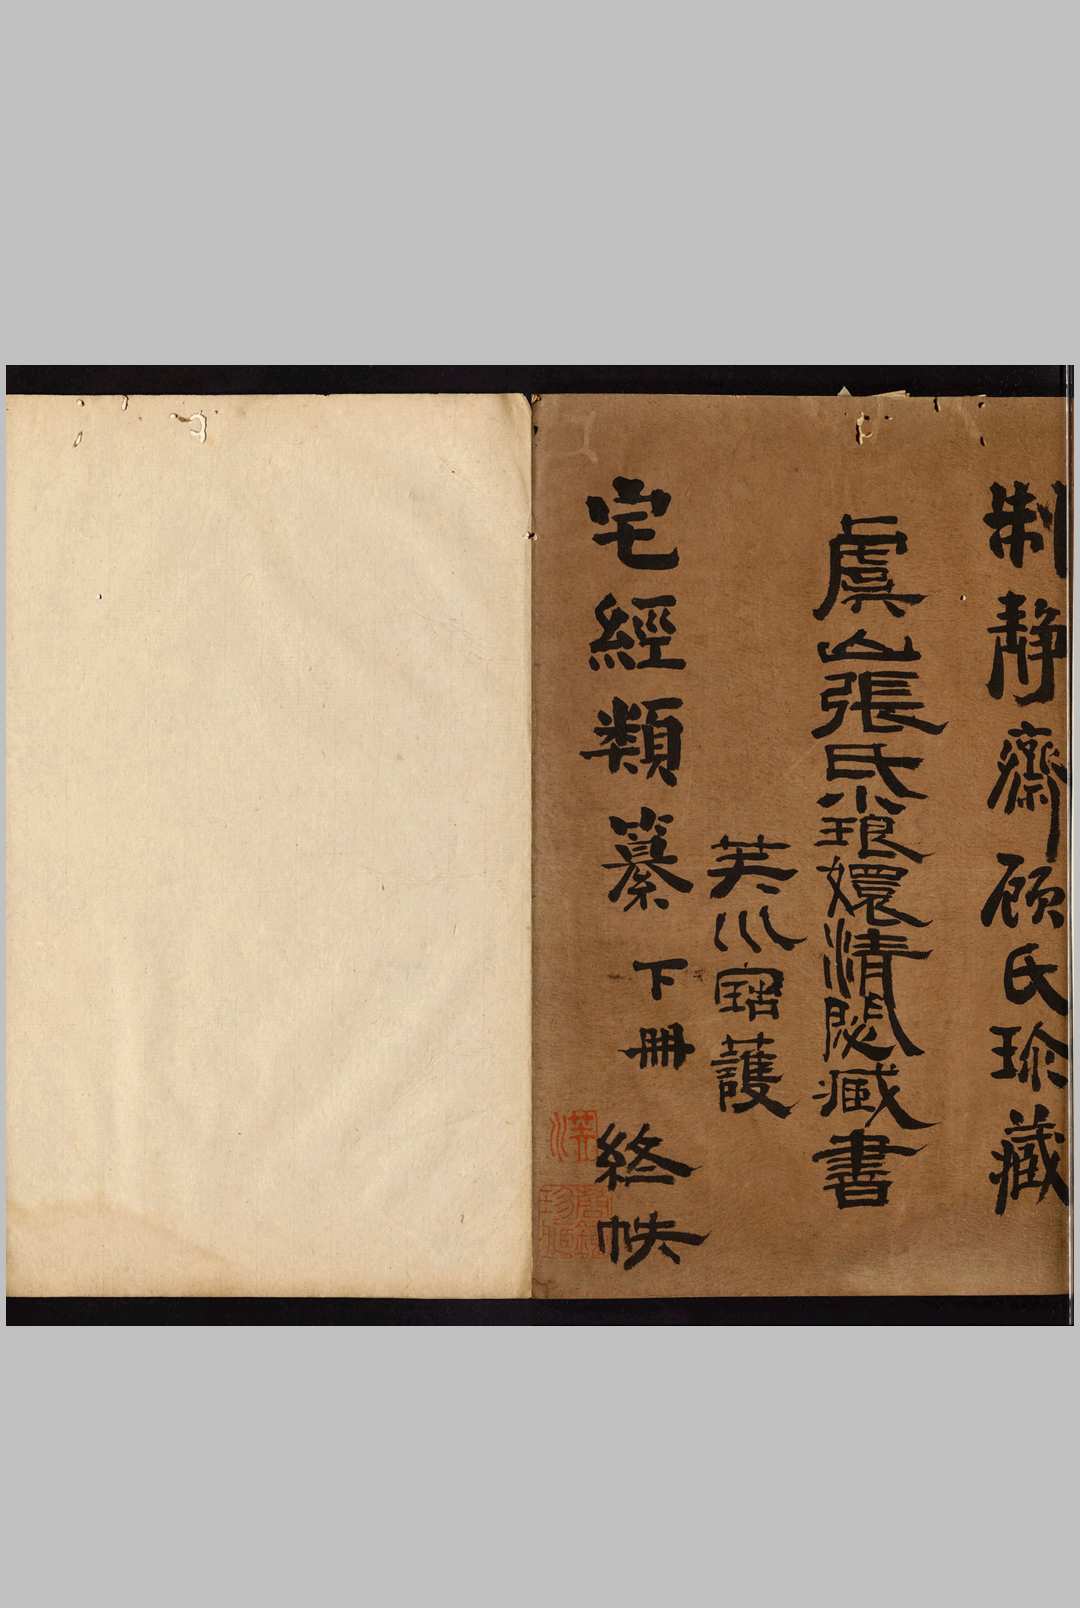 制靜齋顧氏珍藏
虞山張氏小琅嬛清閟藏書
芙川寶護
宅經類纂 下冊 終帙